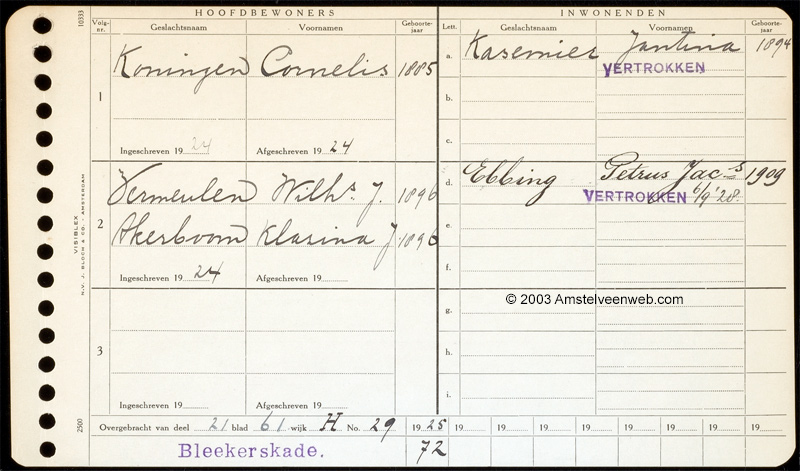 HOOFDBEWONERS
INWONENDEN
Volg-nr. Geslachtsnaam Voornamen Geboorte-jaar
Lett. Geslachtsnaam Voornamen Geboorte-jaar
1 Koningen Cornelis 1885
Ingeschreven 1924 Afgeschreven 1924
a. Kasemier Jantina 1894
VERTROKKEN
b.
c.
2 Vermeulen Wilhs. J. 1896
Akerboom Klasina J. 1896
Ingeschreven 1924 Afgeschreven 19
d. Ebbing Petrus Jac-s 1909
VERTROKKEN 6/9 '28.
e.
f.
3
Ingeschreven 19 Afgeschreven 19
g.
h.
i.
© 2003 Amstelveenweb.com
Overgebracht van deel 21 blad 61 wijk H No. 29 1925 19 19 19 19 19 19 19 19 19
Bleekerskade. 72
10333
VISIBLEX
N.V. J. BLOCH & CO. - AMSTERDAM
2500